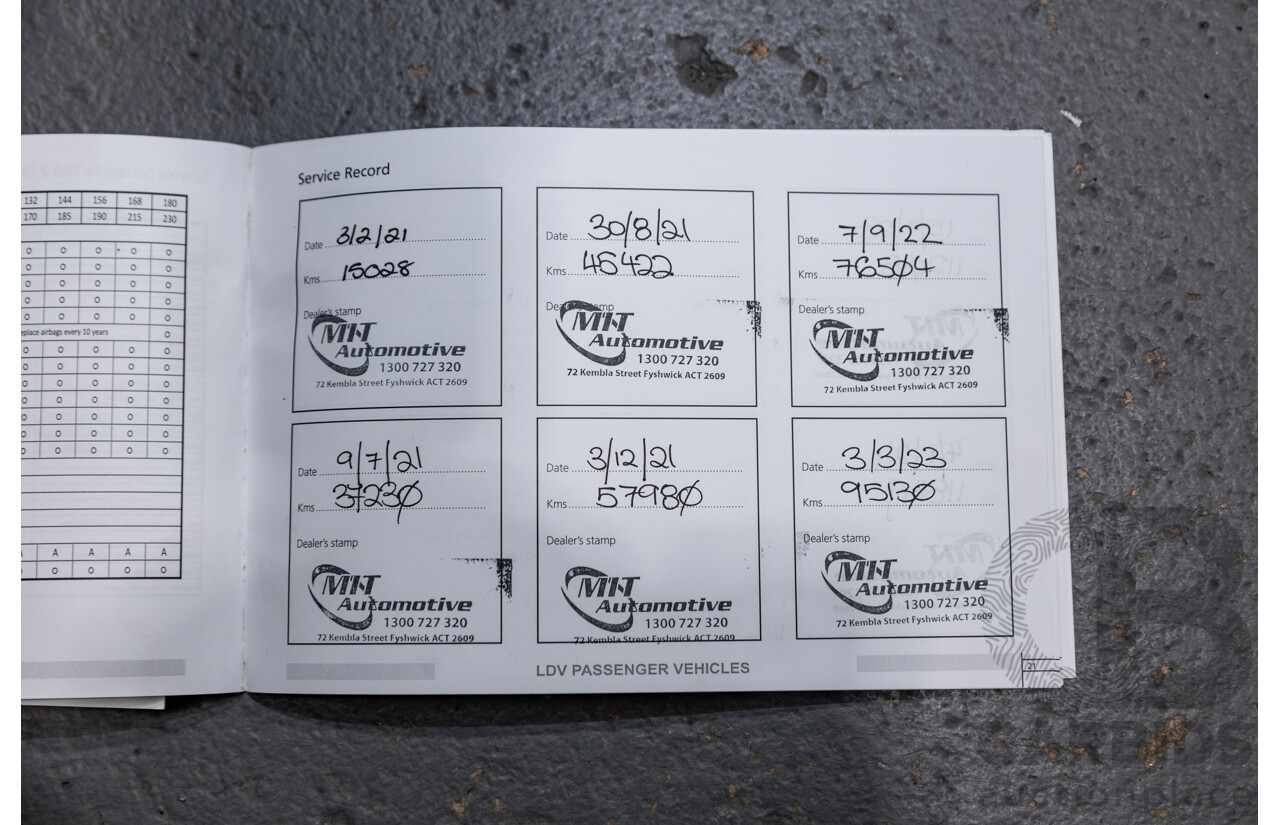 132 144 156 168 180
170 185 190 215 230
o o o o o
o o o o o
o o o o o
o o o o o
o o o o o
eplace airbags every 10 years o
o o o o o
o o o o o
o o o o o
o o o o o
o o o o o
o o o o o
o o o o o
A A A A A
o o o o o
Service Record
Date 3/2/21
Kms 15028
Dealer's stamp
MHT
Automotive
1300 727 320
72 Kembla Street Fyshwick ACT 2609
Date 30/8/21
Kms 45422
Dealer's stamp
MHT
Automotive
1300 727 320
72 Kembla Street Fyshwick ACT 2609
Date 7/9/22
Kms 76504
Dealer's stamp
MHT
Automotive
1300 727 320
72 Kembla Street Fyshwick ACT 2609
Date 9/7/21
Kms 37230
Dealer's stamp
MHT
Automotive
1300 727 320
72 Kembla Street Fyshwick ACT 2609
Date 3/12/21
Kms 57980
Dealer's stamp
MHT
Automotive
1300 727 320
72 Kembla Street Fyshwick ACT 2609
Date 3/3/23
Kms 95130
Dealer's stamp
MHT
Automotive
1300 727 320
72 Kembla Street Fyshwick ACT 2609
LDV PASSENGER VEHICLES
21
ALLBIDS
auctionplace